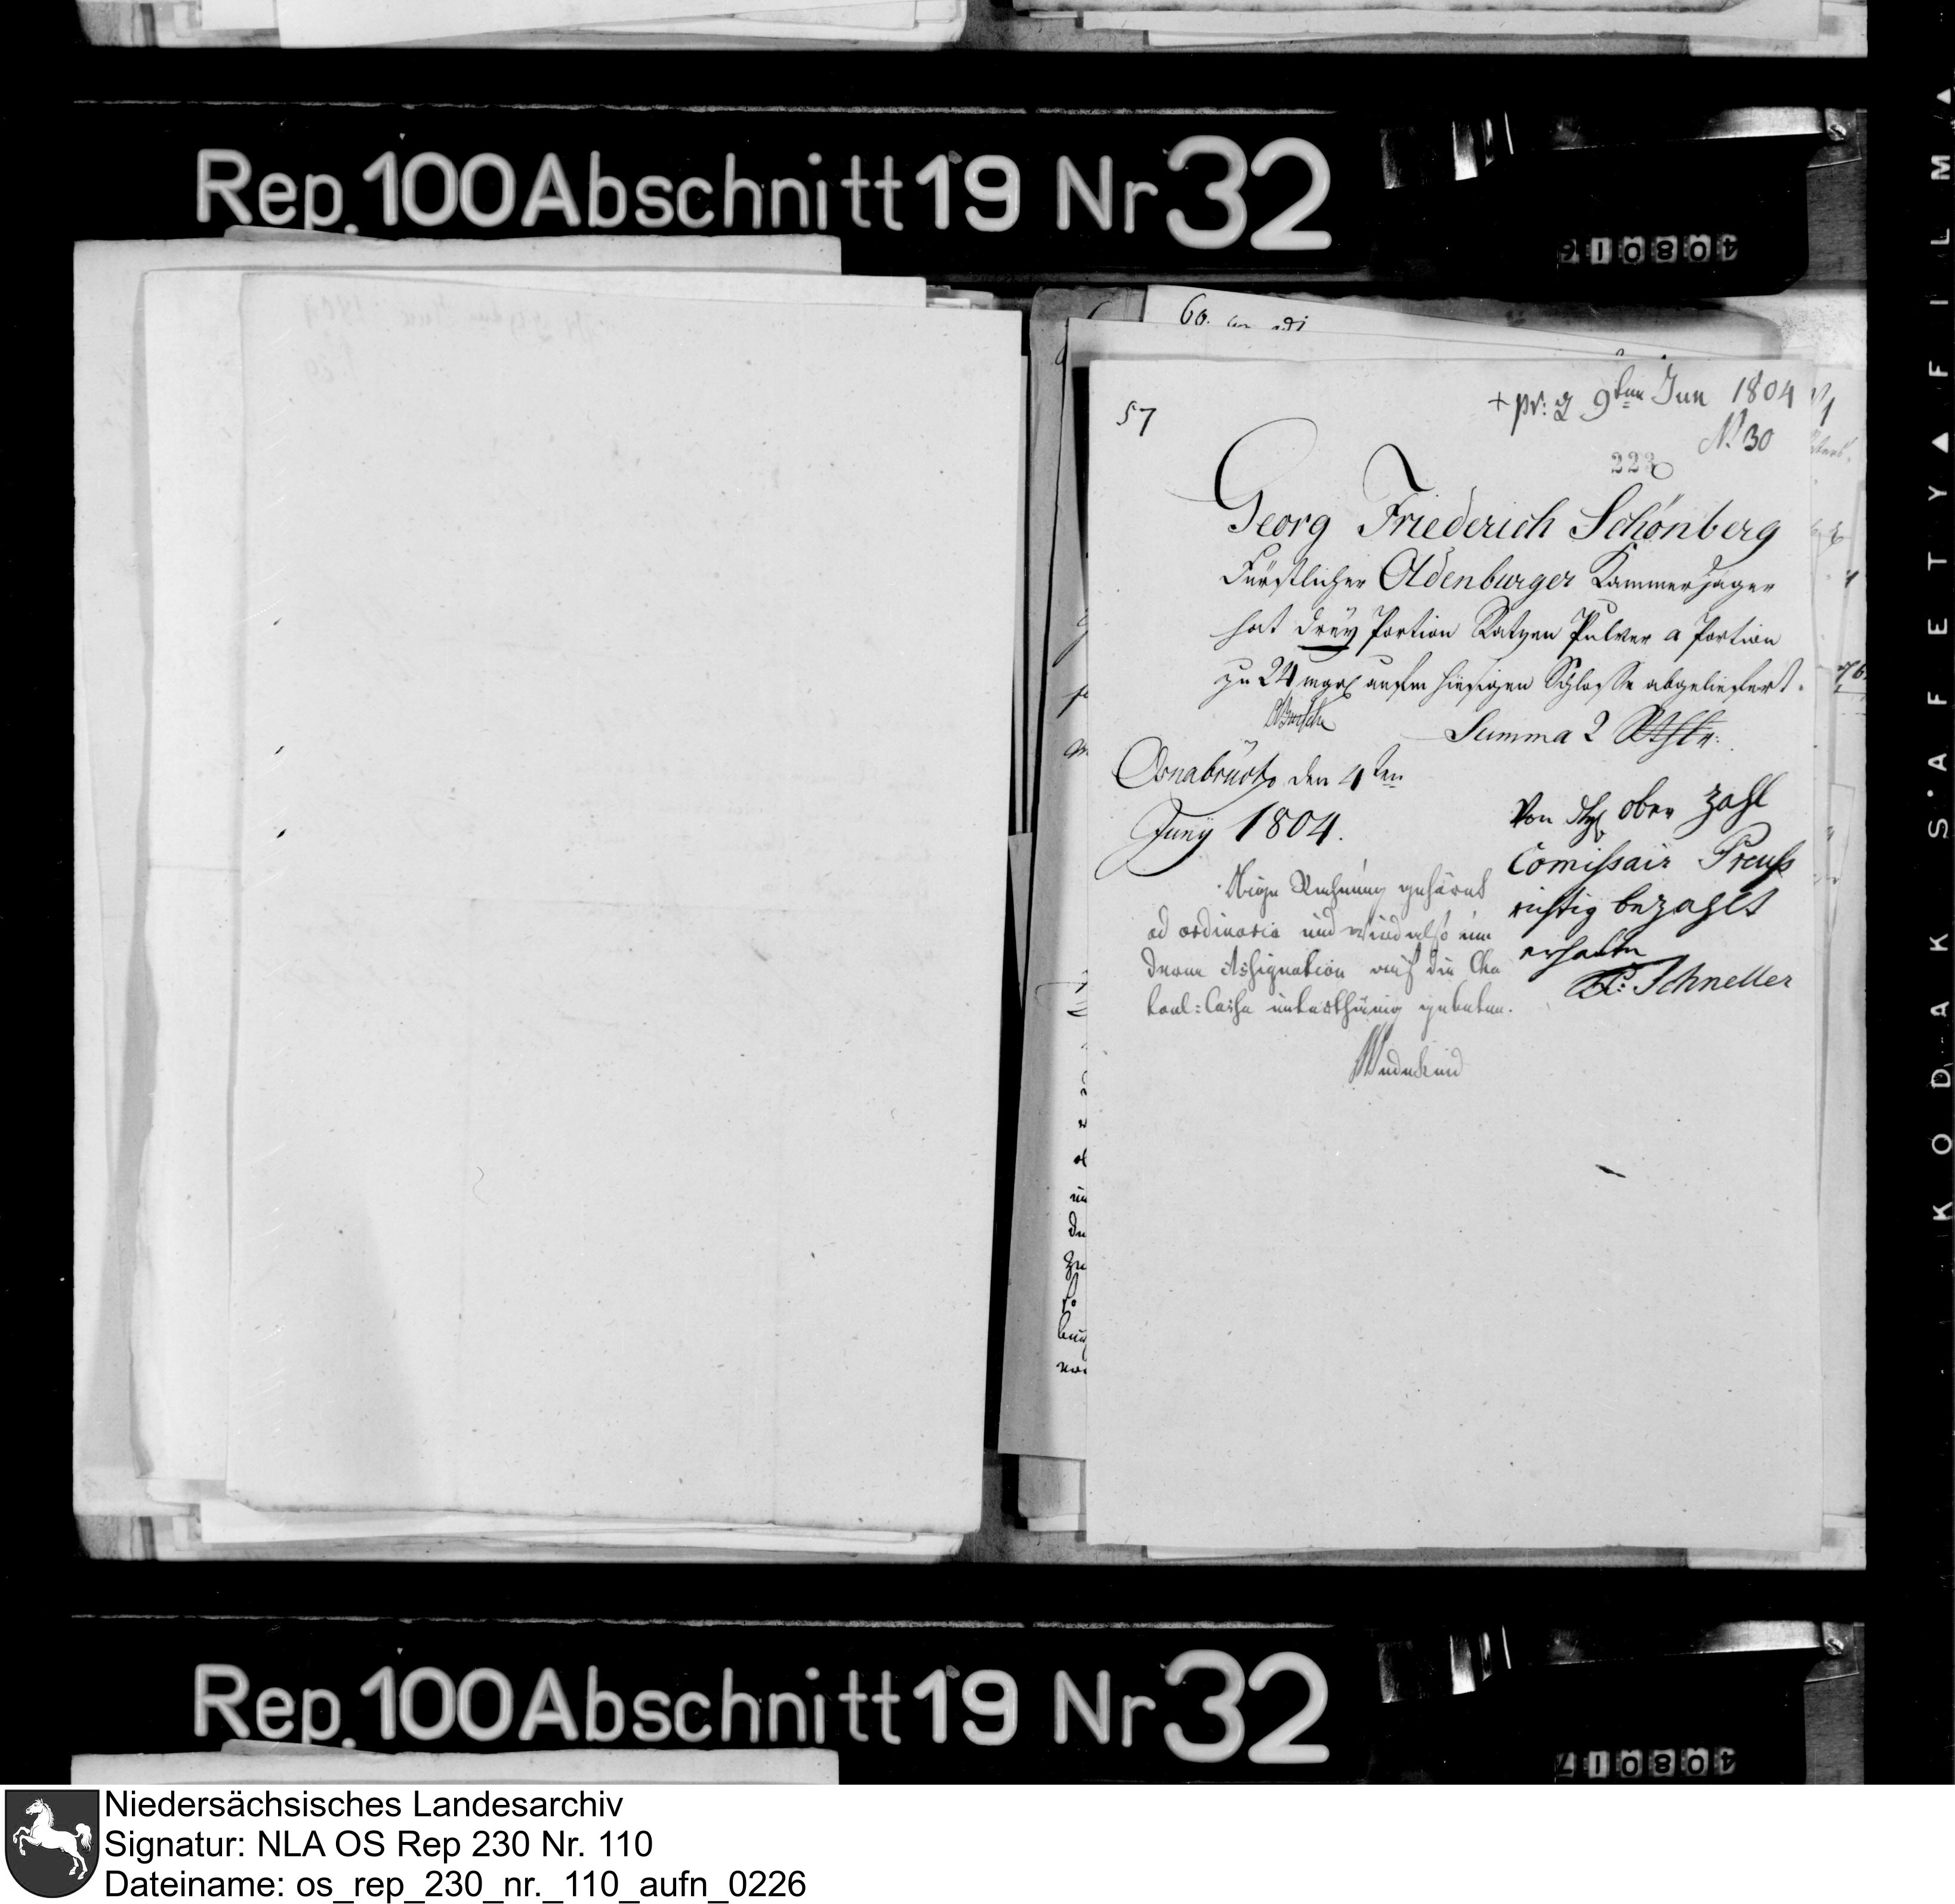 Rep. 100 Abschnitt 19 Nr 32
408016
60.
57
+ pr: d 9ten Jun 1804
N. 30
223
Georg Friederich Schönberg
Fürstlicher Oldenburger Kammerjager
hat dreÿ Portion Ratzen Pulver a Portion
zu 24 mgr aufm hiesigen Schlosse abgeliefert.
Summa 2 Rthlr:
Osnabrück den 4ten
Junÿ 1804.
Von ober Zahl
Comissair Preuß
richtig bezahlt
erhalten
Schneller
Obige Rechnung gehört
ad ordinaria und wird also um
deren Assignation auf die Cha
toul=Casse unterthänig gebeten.
Wedekind
Rep. 100 Abschnitt 19 Nr 32
408017
KODAK SAFETY FILM
Niedersächsisches Landesarchiv
Signatur: NLA OS Rep 230 Nr. 110
Dateiname: os_rep_230_nr._110_aufn_0226